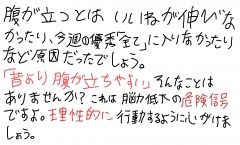 腹が立つとは いいねが伸びな
かったり、今週の優秀「全て」に入りなかったり
など原因だったでしょう。
「昔より腹が立ちやすい」そんなことは
ありませんか？これは脳力低大の危険信号
ですよ。理性的に行動するように心がけま
しょう。